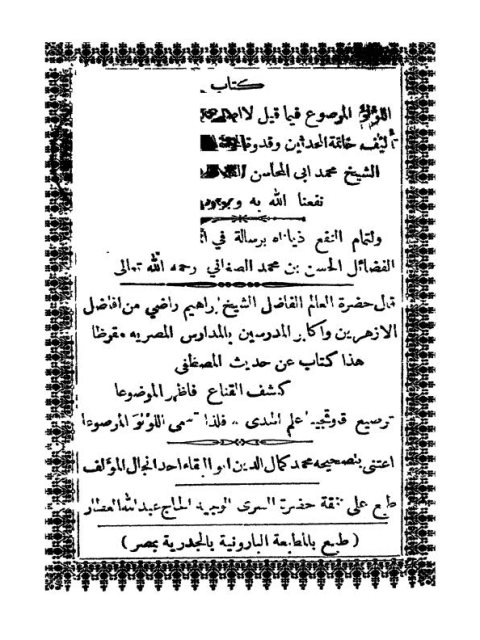 كتاب
اللؤلؤ المرصوع فيما قيل لا اصل
تأليف خاتمة المحدثين وقدوة
الشيخ محمد ابى المحاسن
نفعنا الله به
ولتمام النفع ذيلناه برسالة في
الفضائل الحسن بن محمد الصغاني رحمه الله تعالى
قال حضرة العالم الفاضل الشيخ ابراهيم راضي من افاضل
الازهريين واكابر المدرسين بالمدارس المصريه مقرظا
هذا كتاب عن حديث المصطفى
كشف القناع فاظهر الموضوعا
ترصيع علم الهدى فلذا تسمى اللؤلؤ المرصوعا
اعتنى بتصحيحه محمد كمال الدين ابو البقاء احد انجال المؤلف
طبع على نفقة حضرة السرى الوجيه الحاج عبد الله العطار
( طبع بالمطبعة البارونية بالجدرية بمصر )